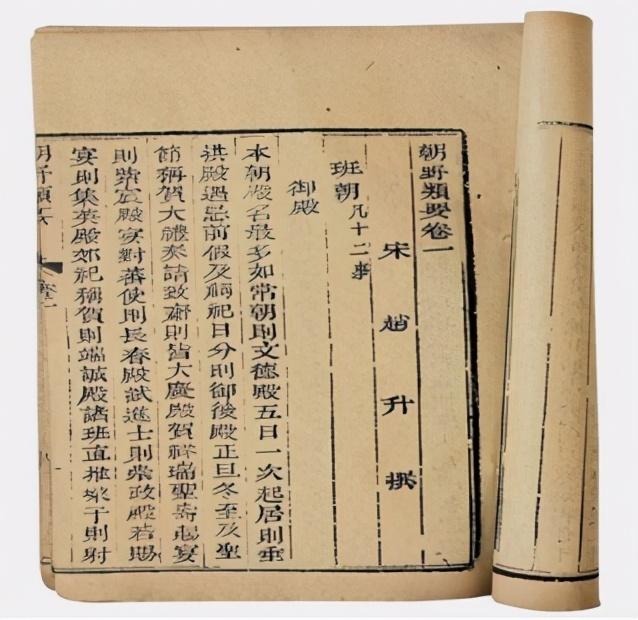 朝野類要卷一
宋 趙 升 撰
班朝凡十二事
御殿
本朝殿名最多如常朝則文德殿五日一次起居則垂
拱殿遇忌前假及祠祀日分則御後殿正旦冬至及聖
節稱賀大禮奏請致齋則皆大慶殿賀祥瑞聖壽賜宴
則紫宸殿宴對蕃使則長春殿試進士則崇政殿若賜
宴則集英殿郊祀稱賀則端誠殿諸班直推垜子則射